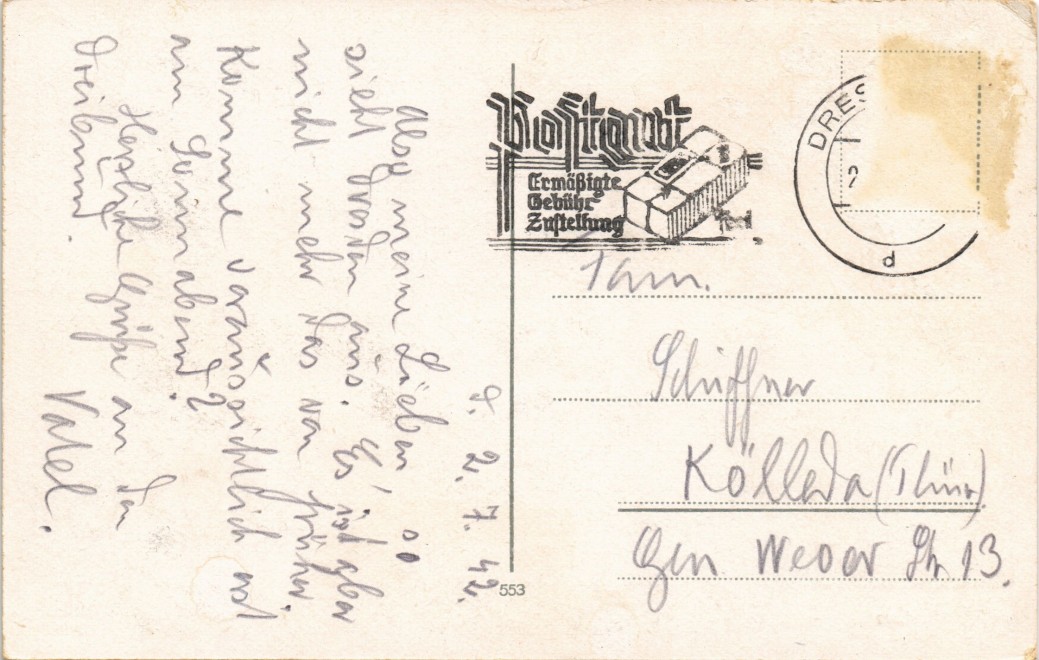 2. 7. 42.
Also meine Lieben, so
sieht Dresden aus. Es ist aber
nicht mehr das von früher.
Komme voraussichtlich erst
am Sonnabend?
Herzliche Grüße an
Dreibund.
Vatel.
Postgut
Ermäßigte
Gebühr
Zustellung
DRES
2
d
Fam.
Schiffner
Kölleda (Thür)
Gen Weber Str 13.
553